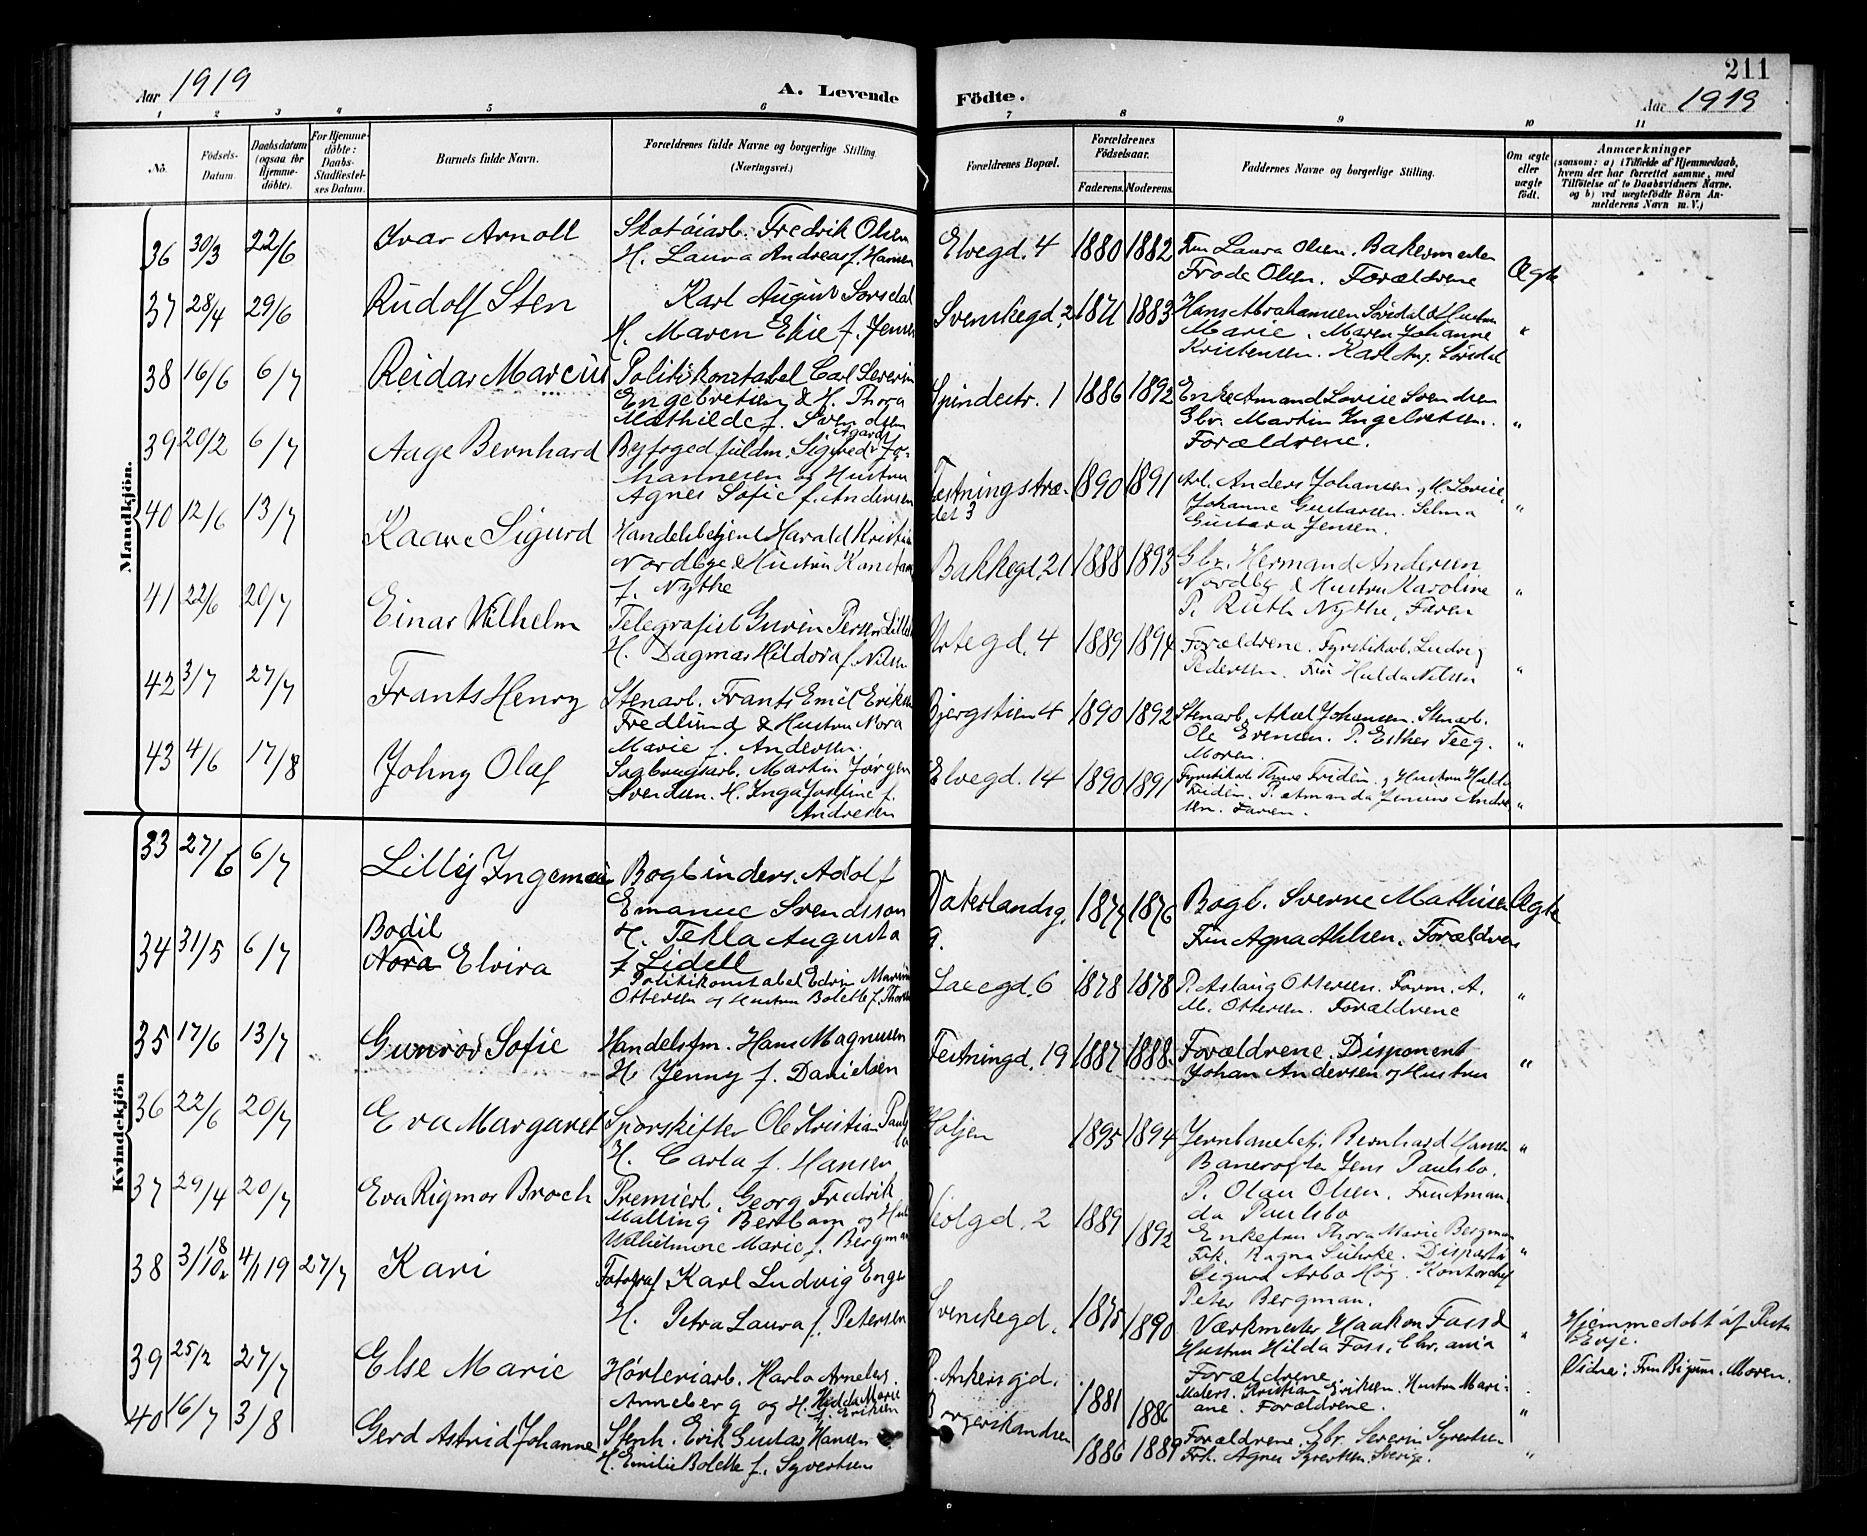 Aar 1919
A. Levende
Födte.
211
Aar 1919
1 2 3 4 5 6 7 8 9 10 11
No.
Födsels-Datum.
Daabsdatum (ogsaa for Hjemmedöbte).
For Hjemmedöbte: Daabs-Stadfæstelses Datum.
Barnets fulde Navn.
Forældrenes fulde Navne og borgerlige Stilling (Næringsvei.)
Forældrenes Bopæl.
Forældrenes Födselsaar.
Faderens. Moderens.
Faddernes Navne og borgerlige Stilling.
Om ægte eller uægte födt.
Anmærkninger
(saasom: a) i Tilfælde af Hjemmedaab, hvem der har forrettet samme, med Tilföielse af to Daabsvidners Navne, og b) ved uægtefödte Börn Anmelderens Navn m. V.)
Mandkjön.
36 30/3 22/6 Ivar Arnolt
Skotöiarb. Fredrik Olsen
H. Laura Andrea f. Hansen
Elvegd. 4 1880 1882
Fru Laura Olsen. Bakermester
Frode Olsen. Forældrene
Ægte
37 28/4 29/6 Rudolf Sten
Karl August Sørsdal
H. Maren Elise f. Jensen
Svenskegd. 2 1871 1883
Hans Abrahamsen Sørsdal & Hustru
Marie. Maren Johanne
Kristensen. Karl Aug. Sørsdal
"
38 16/6 6/7 Reidar Marcus
Politikonstabel Carl Severin
Engebretsen & H. Thora
Mathilde f. Svendsen
Spindestr. 1 1886 1892
Enke Amanda Lovise Svendsen
Gbr. Martin Ingebretsen.
Forældrene.
"
39 20/2 6/7 Aage Bernhard
Byfogedfuldm. Sigurd Jo-
hannesen og Hustru
Agnes Sofie f. Andersen
Festningstræ-
det 3 1890 1891
Arb. Anders Johansen & H. Lovise.
Johanne Gustavsen. Selma
Gustava Jensen.
"
40 12/6 13/7 Kaare Sigurd
Handelsbetjent Harald Kristian
Nordbye & Hustru
f. Nythe
Bakkegd. 21 1888 1893
Gbr. Hermand Andersen
Nordby & Hustru Karoline
P. Ruth Nythe, Faren
"
41 22/6 20/7 Einar Wilhelm
Telegrafist
H. Dagmar Hildora f. Nilsen
Urtegd. 4 1889 1894
Forældrene. Fyrstikarb. Ludvig
Pedersen. Frú Hulda Nilsen
"
42 3/7 27/7 Frants Henry
Stenarb. Frants Emil Eriksen
Fredlund & Hustru Nora
Marie f. Andersen.
Bjergstien 4 1890 1892
Stenarb. Aksel Johansen. Stenarb.
Ole Evensen. P. Esther Teeg.
Moren.
"
43 4/6 17/8 Johny Olaf
Sagbrugsarb. Martin Jørgen
Svendsen. H. Inga Josefine f.
Andresen
Elvegd. 14 1890 1891
Fyrstikarb. Thure Fridén. & Hustru Hulda
Fridén. P. Amanda Jensine Andre-
sen. Faren.
"
Kvindekjön
33 27/6 6/7 Lilly Ingemarie
Bogbinders. Adolf
Emanuel Svendsson
H. Tekla Augusta
f. Lidell
Vaterlandsg.
9. 1874 1876
Bogb. Sverre Mathisen
Fru Agna Ahlsen. Forældrene
Ægte
34 31/5 6/7 Bodil
Nora Elvira
Politikonstabel Edvin Marius
Ottersen og Hustru Bolette f.
6 1878 1878
P. Aslaug Ottersen. Form. A.
M. Ottersen. Forældrene
"
35 17/6 13/7 Gunvor Sofie
Handelsfm. Hans Magnussen
H. Jenny f. Danielsen
Festningd. 19 1887 1888
Forældrene. Disponent
Johan Andersen og Hustru
"
36 22/6 20/7 Eva Margaret
Sporskifter Ole Kristian Pauls-
bo
H. Carla f. Hansen
Høljen 1895 1894
Jernbanebetj. Bernhard Hansen
Banevogter Jens Paulsbo.
P. Olau Olsen. Fru Aman-
da Paulsbo
"
37 29/4 20/7 Eva Rigmor Broch
Premierl. Georg Fredrik
Malling Bertram og Hust.
Wilhelmine Marie f. Bergman
Skolgd. 2 1889 1892
Enkefru Thora Marie Bergman
Frk. Ragna Suhrke. Dispasjør
Sigurd Arbo Høg. Kontorchef
Peter Bergman.
"
38 3/10 18 4/1 19 27/7 Kari
Fotograf Karl Ludvig Enger
H. Petra Laura f. Petersen
Svenskegd. 1875 1890
Værkmester Haakon Foss &
Hustru Hilda Foss, Chr.ania
Forældrene
"
Hjemmedøbt af
Vidne: Fru Moren.
39 25/2 27/7 Else Marie
Harla Arneberg
Anneberg og H. Hilda Marie
f. Eriksen
P. Ankersgd. 1881 1886
Malers. Kristian Eriksen. Hustru Mari-
ane. Forældrene.
"
40 16/7 3/8 Gerd Astrid Johanne
Stenh. Erik Gustav Hansen
H. Emilie Bolette f. Syvertsen
Borgerskandsen 1886 1889
Forældrene. Gbr. Severin Syvertsen
Frk. Agnes Syvertsen. Sverige.
"